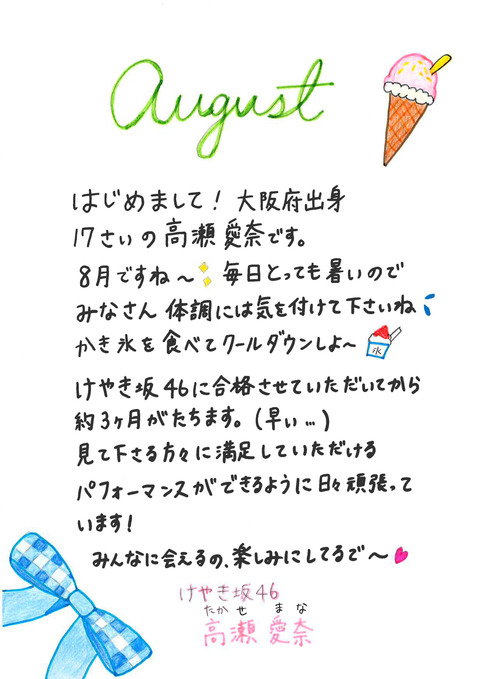 August
はじめまして！大阪府出身
17さいの高瀬愛奈です。
8月ですね〜 毎日とっても暑いので
みなさん体調には気を付けて下さいね
かき氷を食べてクールダウンしよ〜
氷
けやき坂46に合格させていただいてから
約3ヶ月がたちます。(早い…)
見て下さる方々に満足していただける
パフォーマンスができるように日々頑張って
います！
みんなに会えるの、楽しみにしてるで〜
けやき坂46
たかせ まな
高瀬愛奈